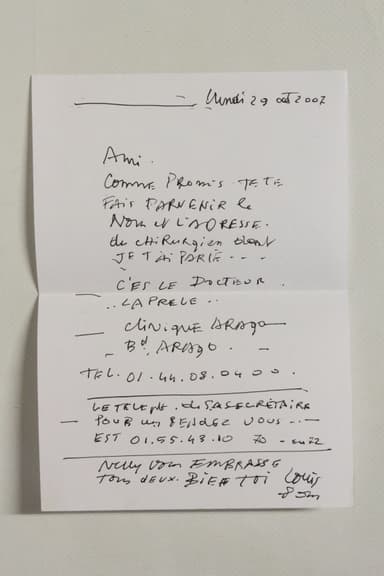 Lundi 29 oct 2007
Ami.
Comme Promis JE TE
FAIS PARVENIR le
Nom et L'ADRESSE.
du CHIRURGIEN dont
JE T'AI PARLÉ - - -
C'EST LE DOCTEUR.
.. LAPRELE ..
CLINIQUE ARAGO
Bd. ARAGO. -
TEL. 01.44.08.04 00.
LE TELEPH. de SA SECRÉTAIRE
POUR un RENDEZ VOUS - . -
EST 01.55.43.10 70 -
Nelly vous EMBRASSE
Tous deux. BIEN à TOI Louis